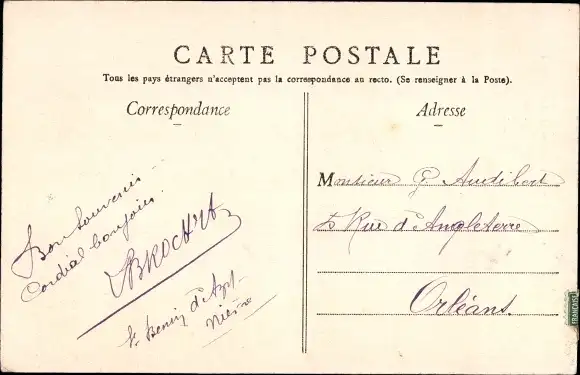 CARTE POSTALE
Tous les pays étrangers n'acceptent pas la correspondance au recto. (Se renseigner à la Poste).
Correspondance
Adresse
Bon Souvenir
Cordial bonjour
BROCHUT
St Benin d'Azy
Nièvre
Monsieur G Audibert
5 Rue d'Angleterre
Orléans.
FRANÇAIS